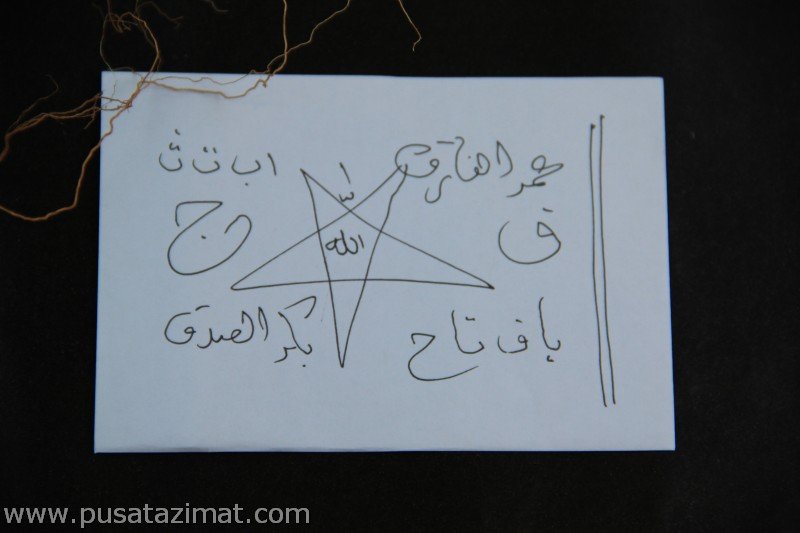 عمر الفارق
اب ت ث
ف
الله
ج
يا ف تاح
بكر الصدق
www.pusatazimat.com